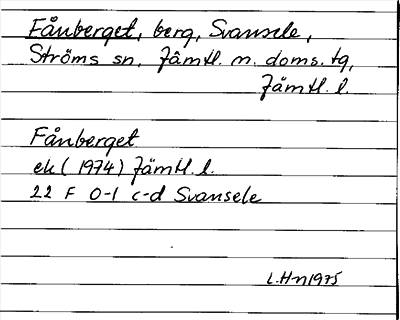 Fånberget, berg, Svansele,
Ströms sn, Jämtl. m. doms. tg,
Jämtl. l.
Fånberget
ek (1974) Jämtl. l.
22 F 0-1 c-d Svansele
L.Hn 1975